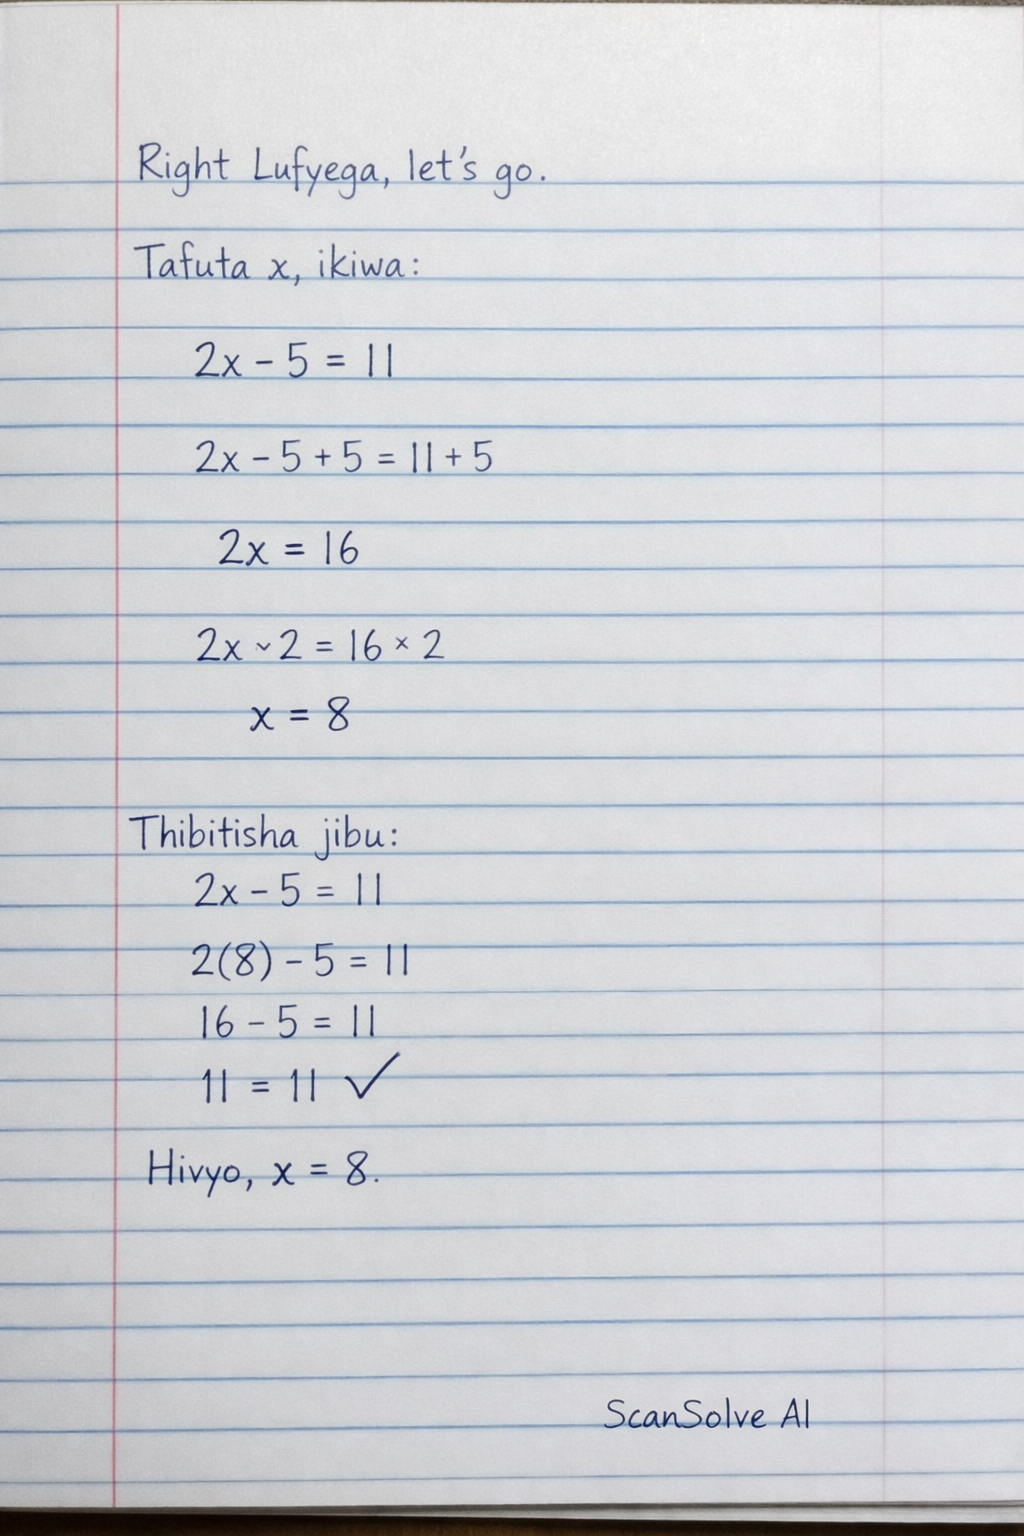 Right Lufyega, let's go.
Tafuta x, ikiwa:
2x - 5 = 11
2x - 5 + 5 = 11 + 5
2x = 16
2x ˇ 2 = 16 × 2
x = 8
Thibitisha jibu:
2x - 5 = 11
2(8) - 5 = 11
16 - 5 = 11
11 = 11 ✓
Hivyo, x = 8.
ScanSolve AI